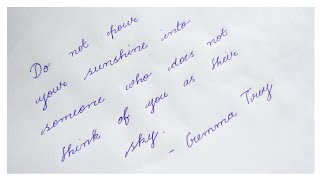 Do not pour
your sunshine into
someone who does not
think of you as their
sky.
- Gemma Troy